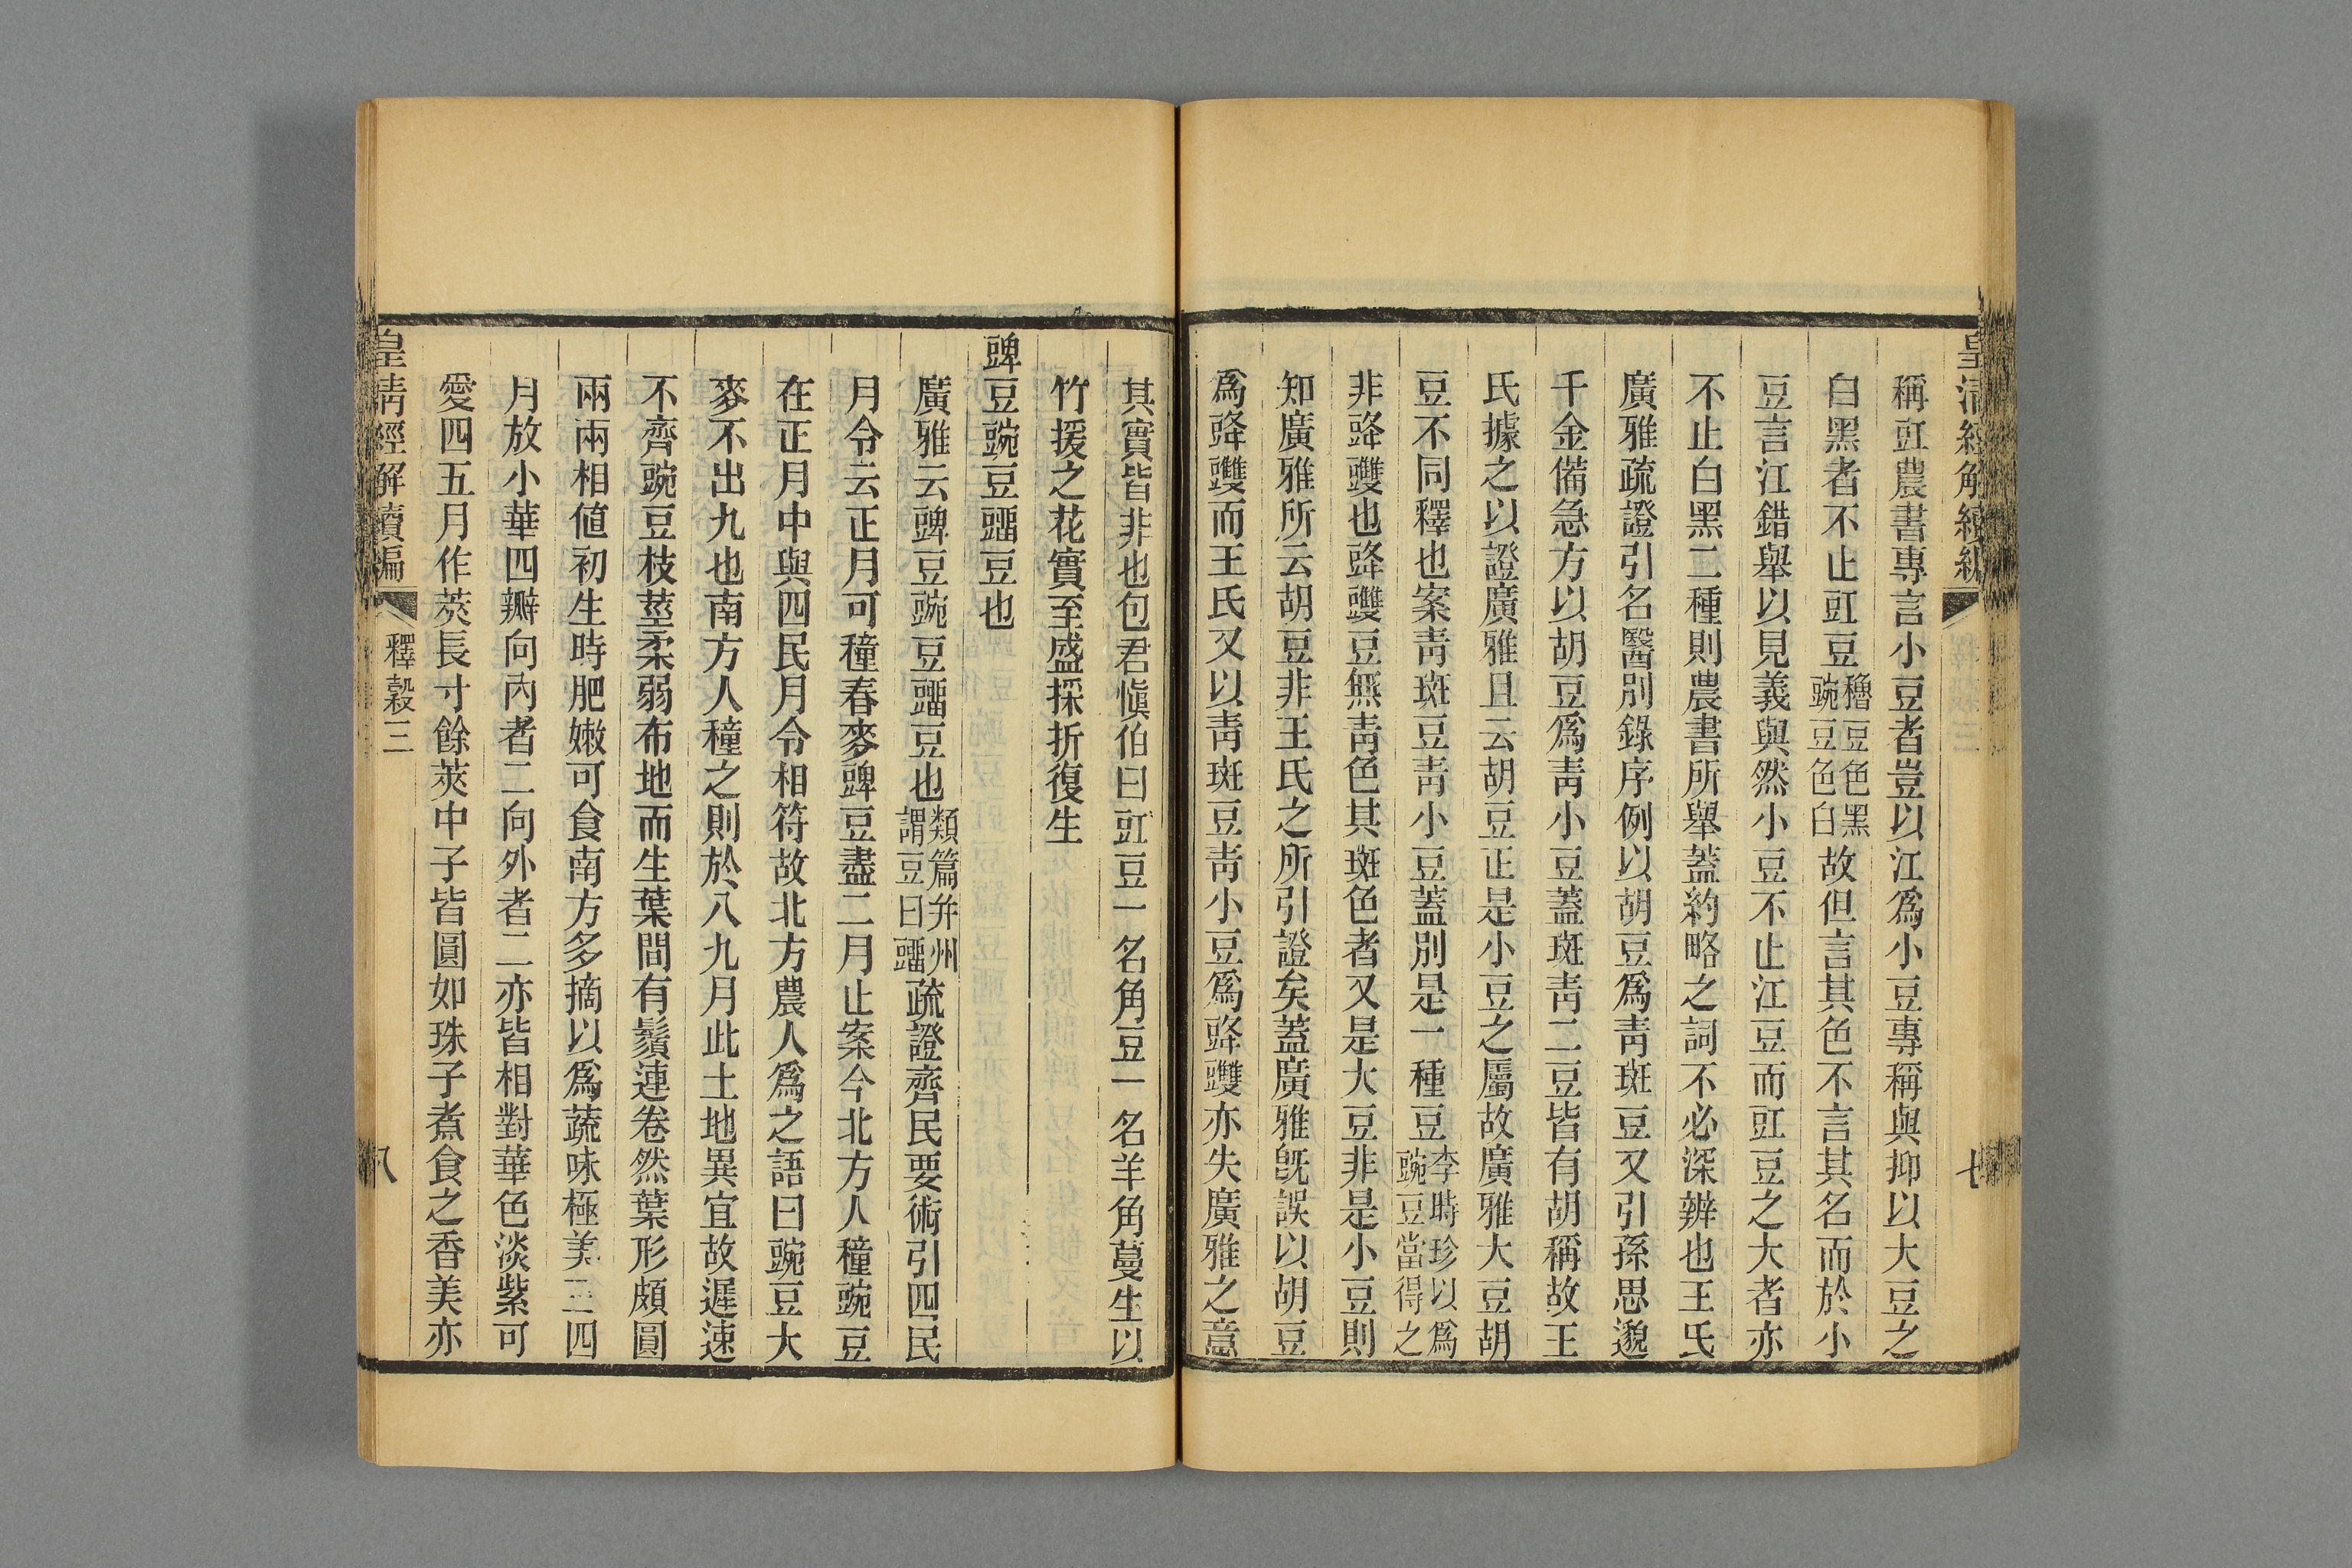 皇清經解續編
七
稱豇農書專言小豆者豈以江爲小豆專稱與抑以大豆之
白黑者不止豇豆穭豆色黑豌豆色白故但言其色不言其名而於小
豆言江錯舉以見義與然小豆不止江豆而豇豆之大者亦
不止白黑二種則農書所舉蓋約略之詞不必深辨也王氏
廣雅疏證引名醫別錄序例以胡豆爲靑斑豆又引孫思邈
千金備急方以胡豆爲靑小豆蓋斑靑二豆皆有胡稱故王
氏據之以證廣雅且云胡豆正是小豆之屬故廣雅大豆胡
豆不同釋也案靑斑豆靑小豆蓋別是一種豆李時珍以爲豌豆當得之
非䜶䝄也䜶䝄豆無靑色其斑色者又是大豆非是小豆則
知廣雅所云胡豆非王氏之所引證矣蓋廣雅旣誤以胡豆
爲䜶䝄而王氏又以靑斑豆靑小豆爲䜶䝄亦失廣雅之意
其實皆非也包君愼伯曰豇豆一名角豆一名羊角蔓生以
竹援之花實至盛採折復生
豍豆豌豆䝁豆也
廣雅云豍豆豌豆䝁豆也類篇幷州謂豆曰䝁疏證齊民要術引四民
月令云正月可穜春麥豍豆盡二月止案今北方人穜豌豆
在正月中與四民月令相符故北方農人爲之語曰豌豆大
麥不出九也南方人穜之則於八九月此土地異宜故遲速
不齊豌豆枝莖柔弱布地而生葉間有鬚連卷然葉形頗圓
兩兩相値初生時肥嫩可食南方多摘以爲蔬味極美三四
月放小華四瓣向內者二向外者二亦皆相對華色淡紫可
愛四五月作莢長寸餘莢中子皆圓如珠子煮食之香美亦
皇清經解續編
釋穀三
八